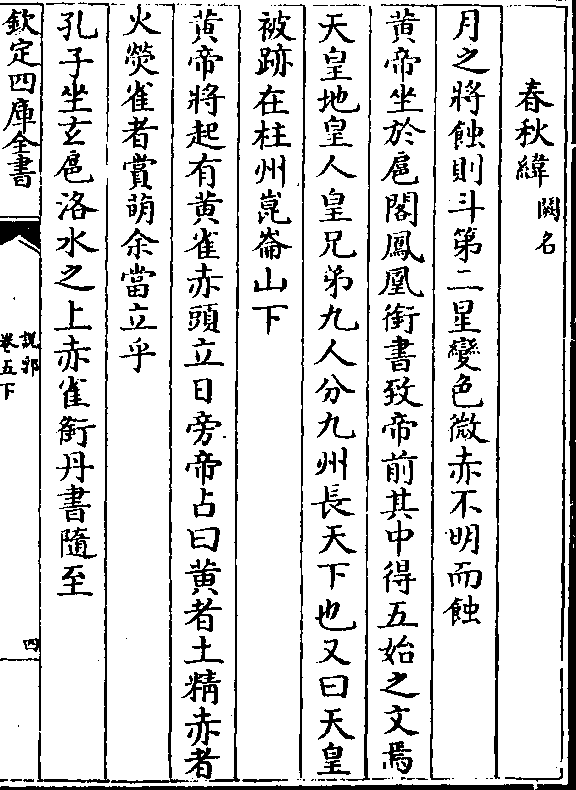 春秋緯 闕名
月之將蝕則斗第二星變色微赤不明而蝕
黄帝坐於扈閣鳳凰銜書致帝前其中得五始之文焉
天皇地皇人皇兄弟九人分九州長天下也又曰天皇
被跡在柱州崑崙山下
黄帝將起有黄雀赤頭立日旁帝占曰黄者土精赤者
火熒雀者賞萌余當立乎
孔子坐玄扈洛水之上赤雀銜丹書隨至
欽定四庫全書
說郛
卷五下
四